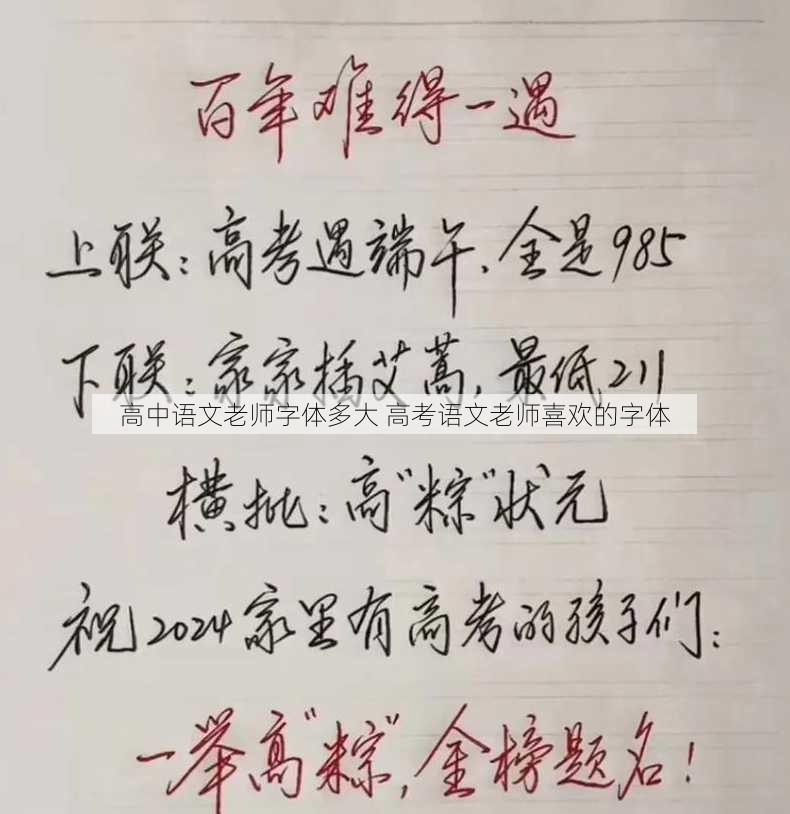 百年难得一遇
上联：高考遇端午、全是985
下联：家家插艾蒿，最低211
高中语文老师字体多大 高考语文老师喜欢的字体
横批：高“粽”状元
祝2024家里有高考的孩子们：
一举高“粽”，金榜题名！